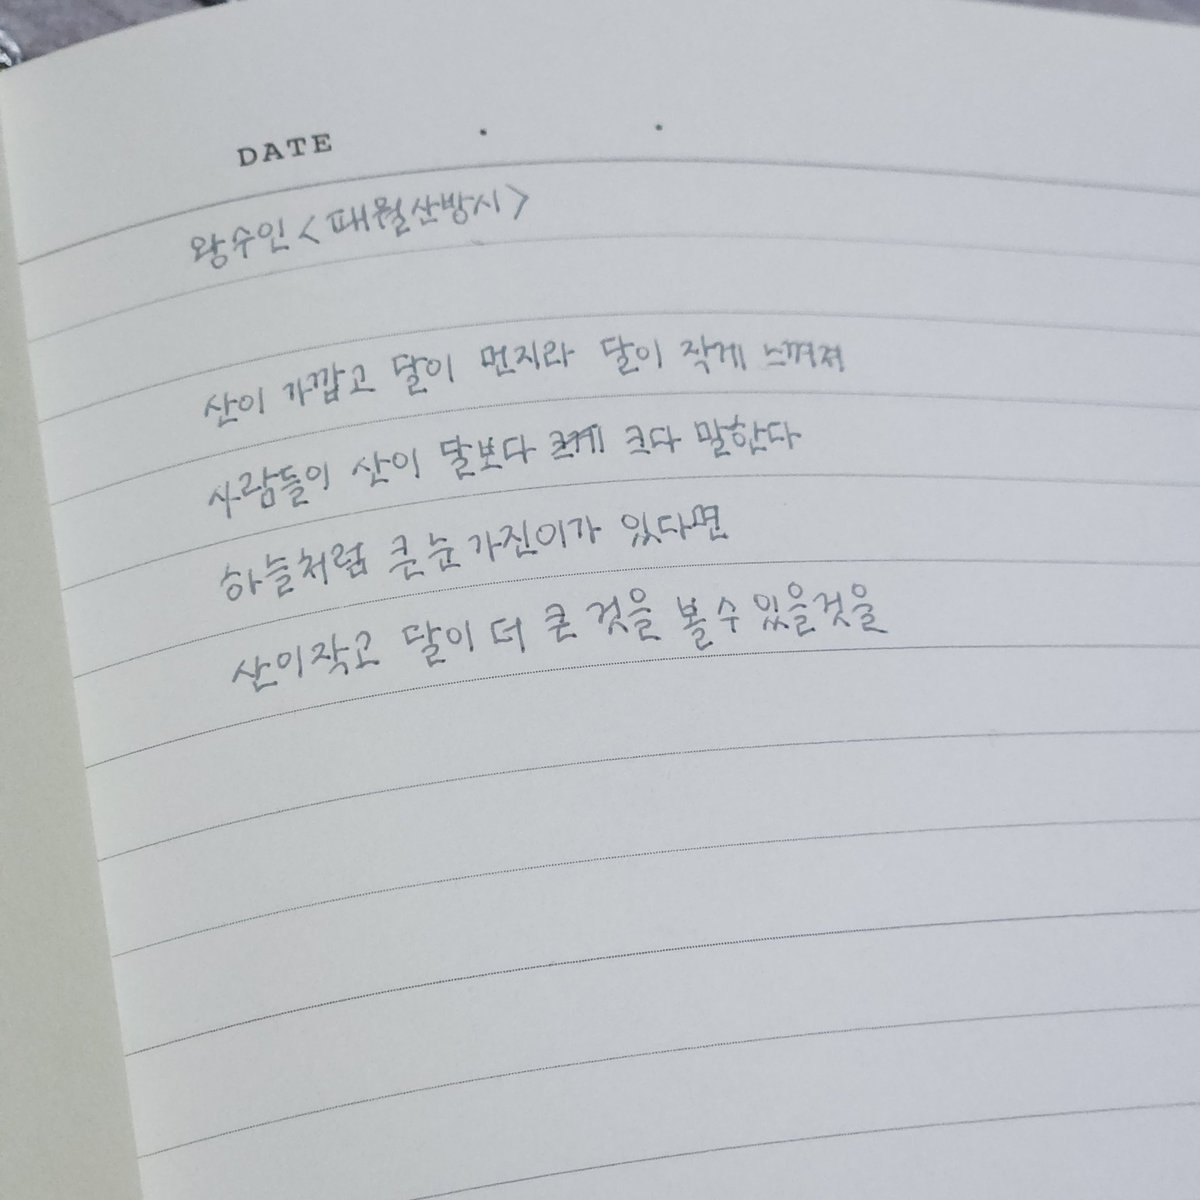 DATE . .
왕수인 <패월산방시>
산이 가깝고 달이 먼지라 달이 작게 느껴져
사람들이 산이 달보다 크다 말한다
하늘처럼 큰 눈 가진이가 있다면
산이작고 달이 더 큰 것을 볼 수 있을것을